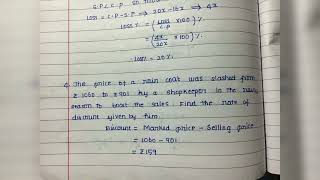 S.P < C.P so
Loss = C.P - S.P => 20x - 16x => 4x
Loss % = (Loss / C.P × 100) %
= (4x / 20x × 100) %
Loss = 20%
The price of a rain coat was slashed from
₹ 1060 to ₹ 901 by a shopkeeper in the rainy
season to boost the sales. Find the rate of
discount given by him.
Discount = Marked price - Selling price
= 1060 - 901
= ₹ 159